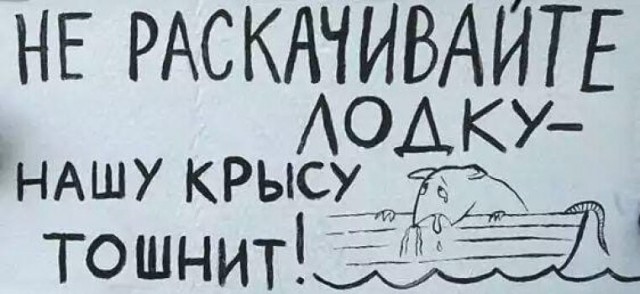 НЕ РАСКАЧИВАЙТЕ
ЛОДКУ-
НАШУ КРЫСУ
ТОШНИТ!